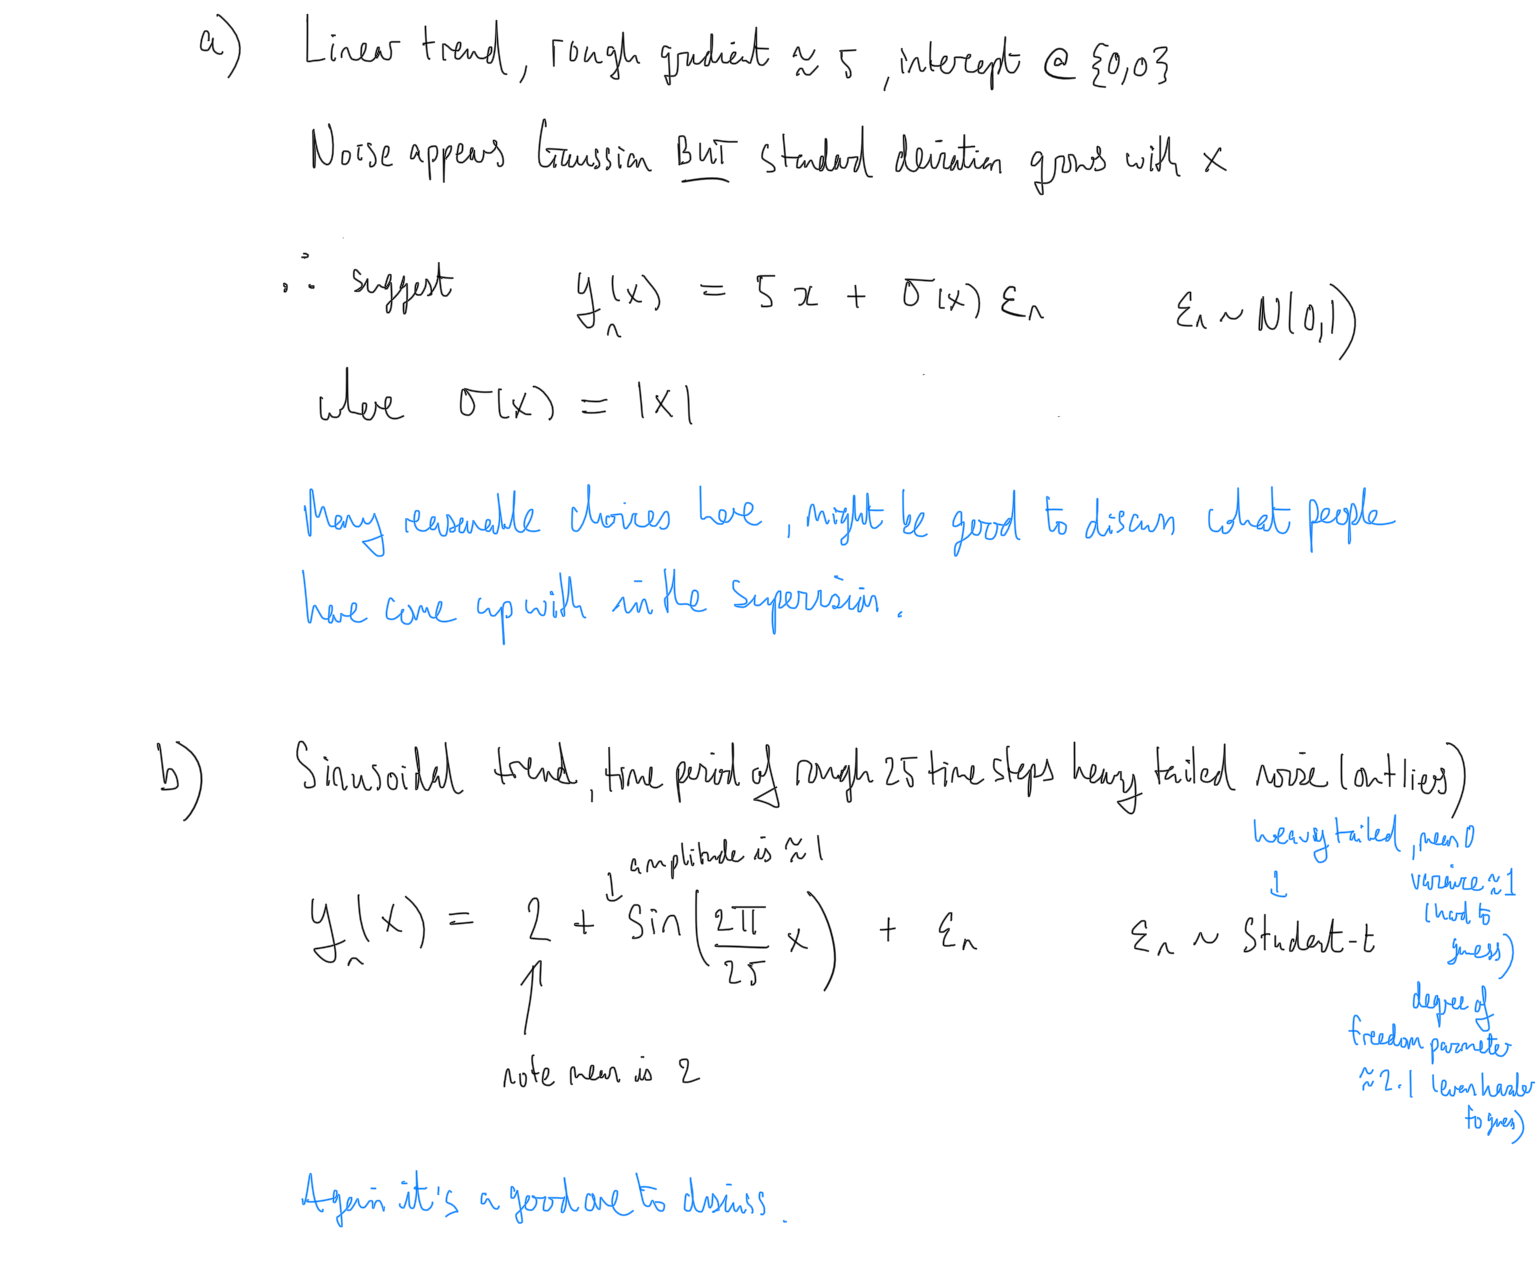 a) Linear trend, rough gradient ≈ 5, intercept @ {0,0}
Noise appears Gaussian BUT standard deviation grows with x
∴ suggest yₙ(x) = 5x + σ(x) εₙ    εₙ ~ N(0,1)
where σ(x) = |x|
Many reasonable choices here, might be good to discuss what people
have come up with in the supervision.
b) Sinusoidal trend, time period of rough 25 time steps heavy tailed noise (outliers)
↓ amplitude is ≈ 1
heavy tailed, mean 0
variance ≈ 1
(hard to
guess)
yₙ(x) = 2 + sin(2π/25 x) + εₙ    εₙ ~ Student-t
degree of
freedom parameter
≈ 2.1 (even harder
to guess)
note mean is 2
Again it's a good one to discuss.